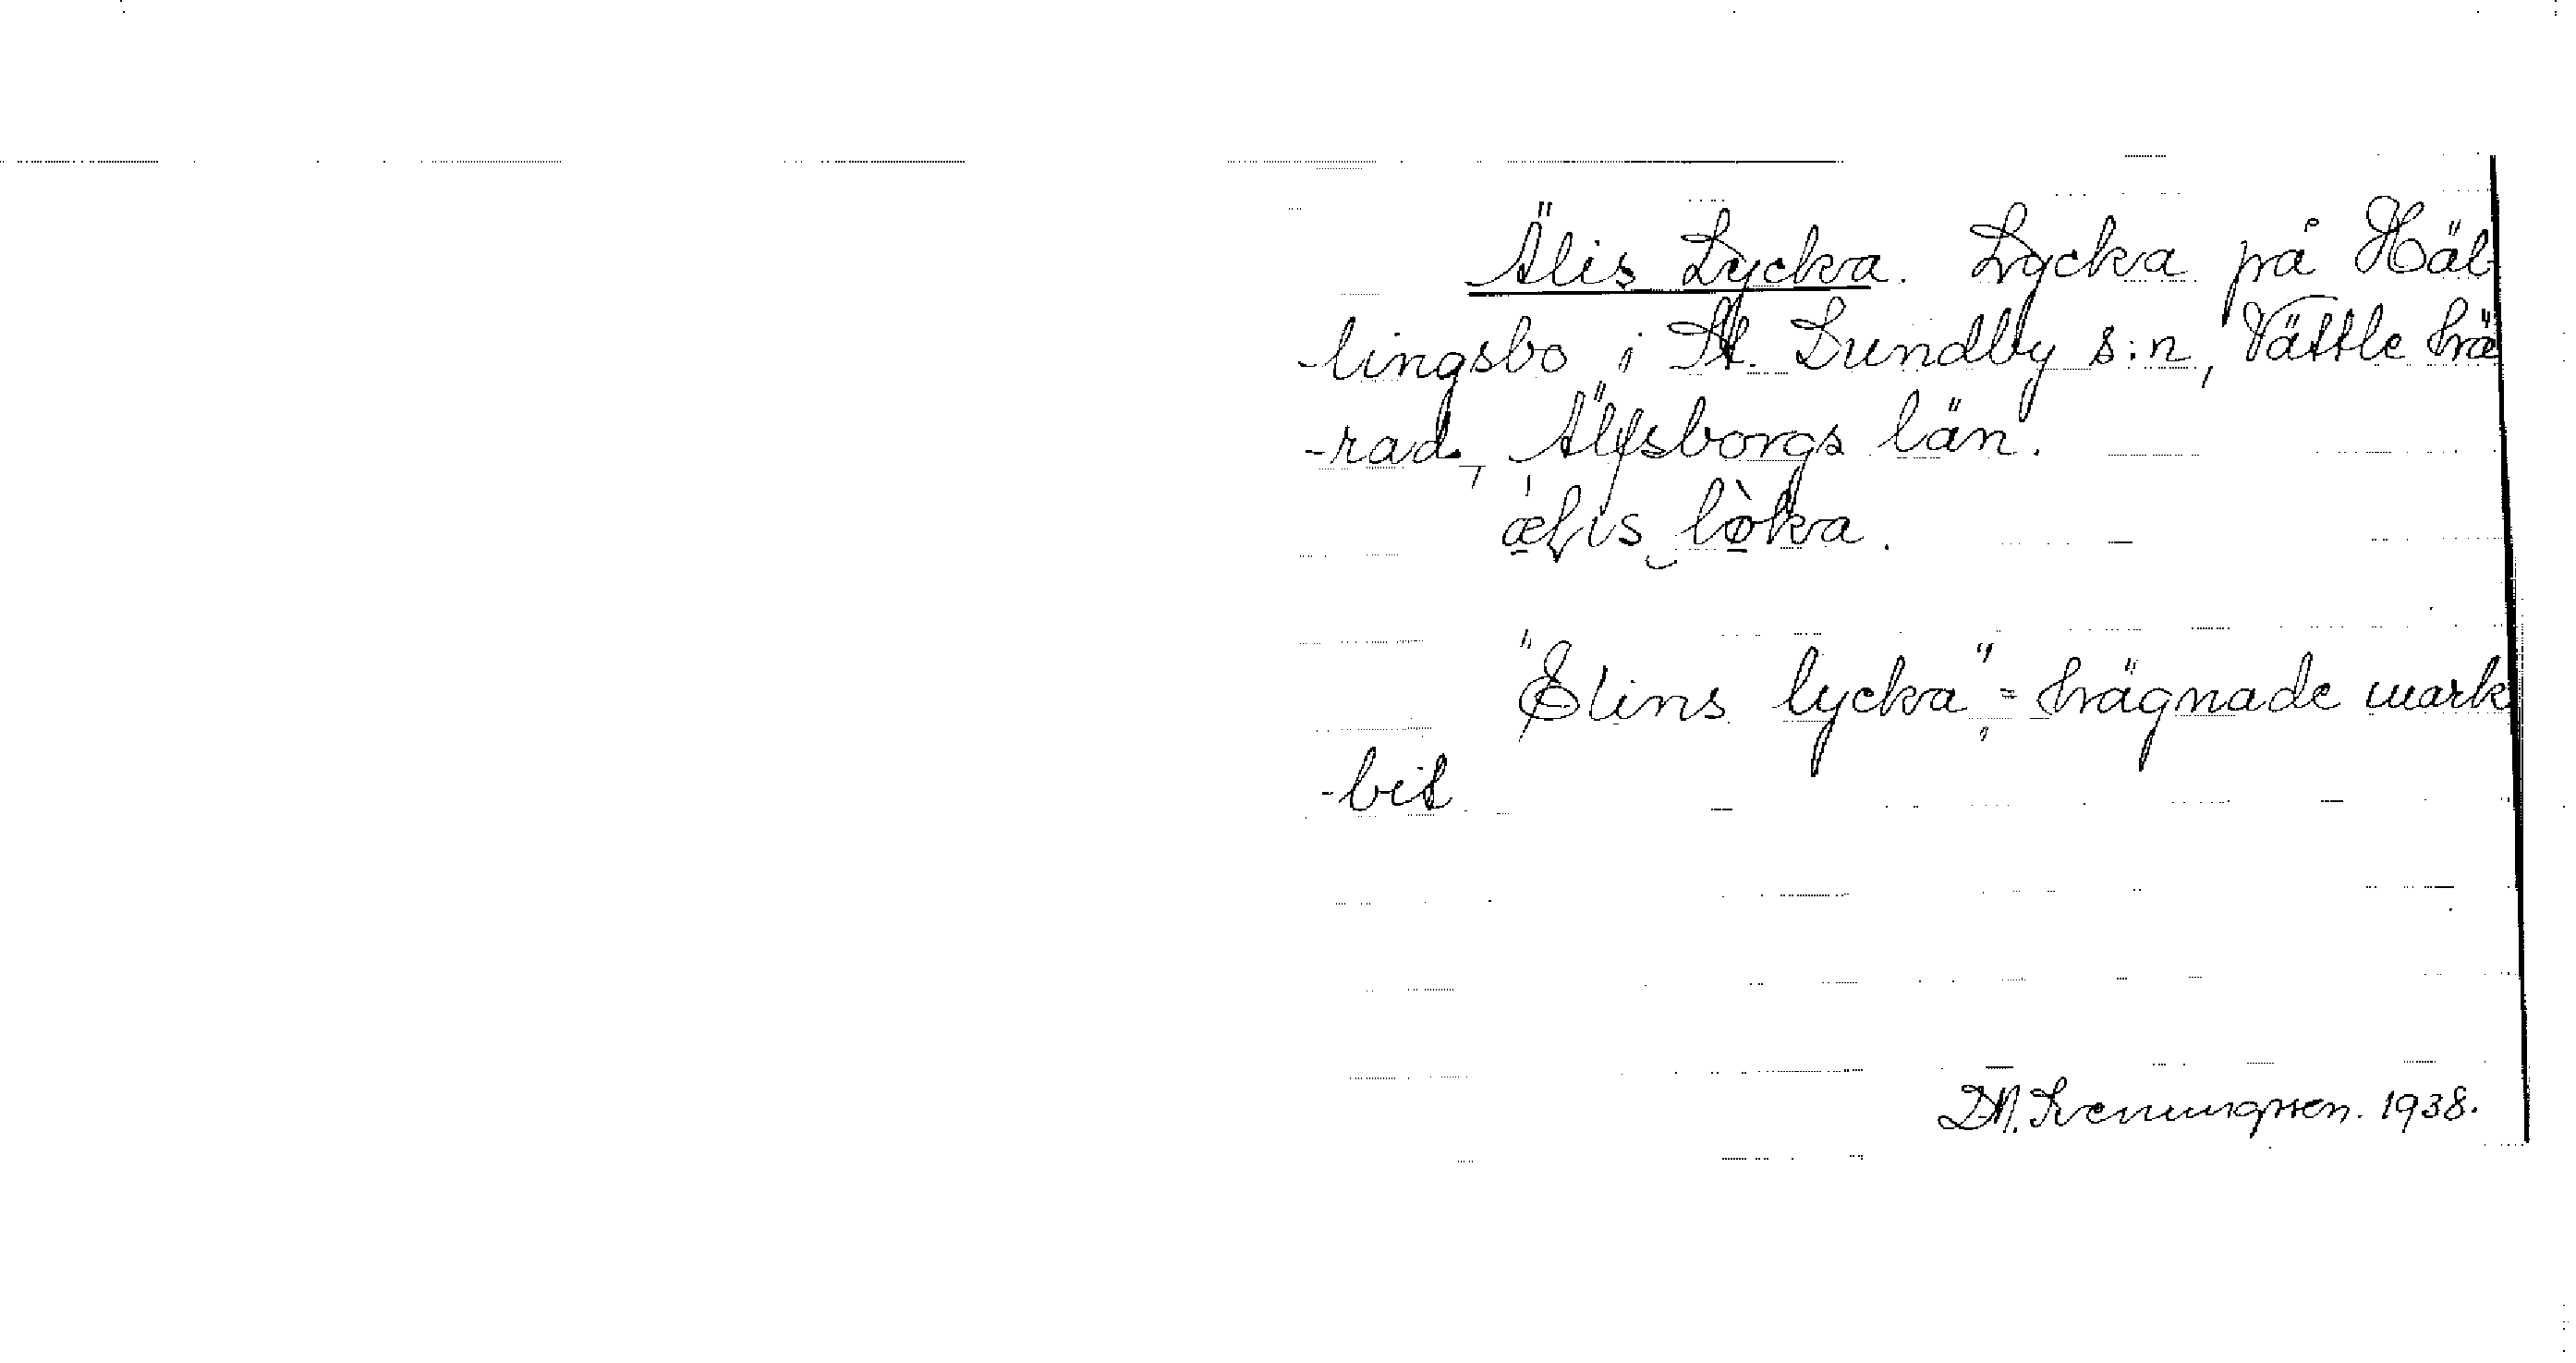 Älis Lycka. Lycka på Häl-
-lingsbo i St. Lundby s:n, Vättle hä
-rad, Älfsborgs län.
ælis løka.
"Elins lycka", = hägnade mark
-bit
D.N. Svenungsson. 1938.